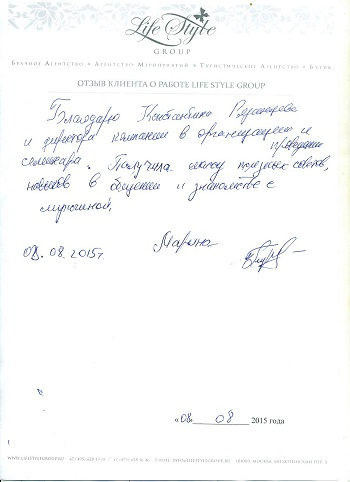 Life Style
GROUP
Брачное Агентство • Агентство Мероприятий • Туристическое Агентство •
ОТЗЫВ КЛИЕНТА О РАБОТЕ LIFE STYLE GROUP
Благодарю Константина
и директора компании в организации и проведении
семинара. Получила массу полезных советов,
навыков в общении и знакомстве с
мужчиной.
08.08.2015г Марина
«08» 08 2015 года